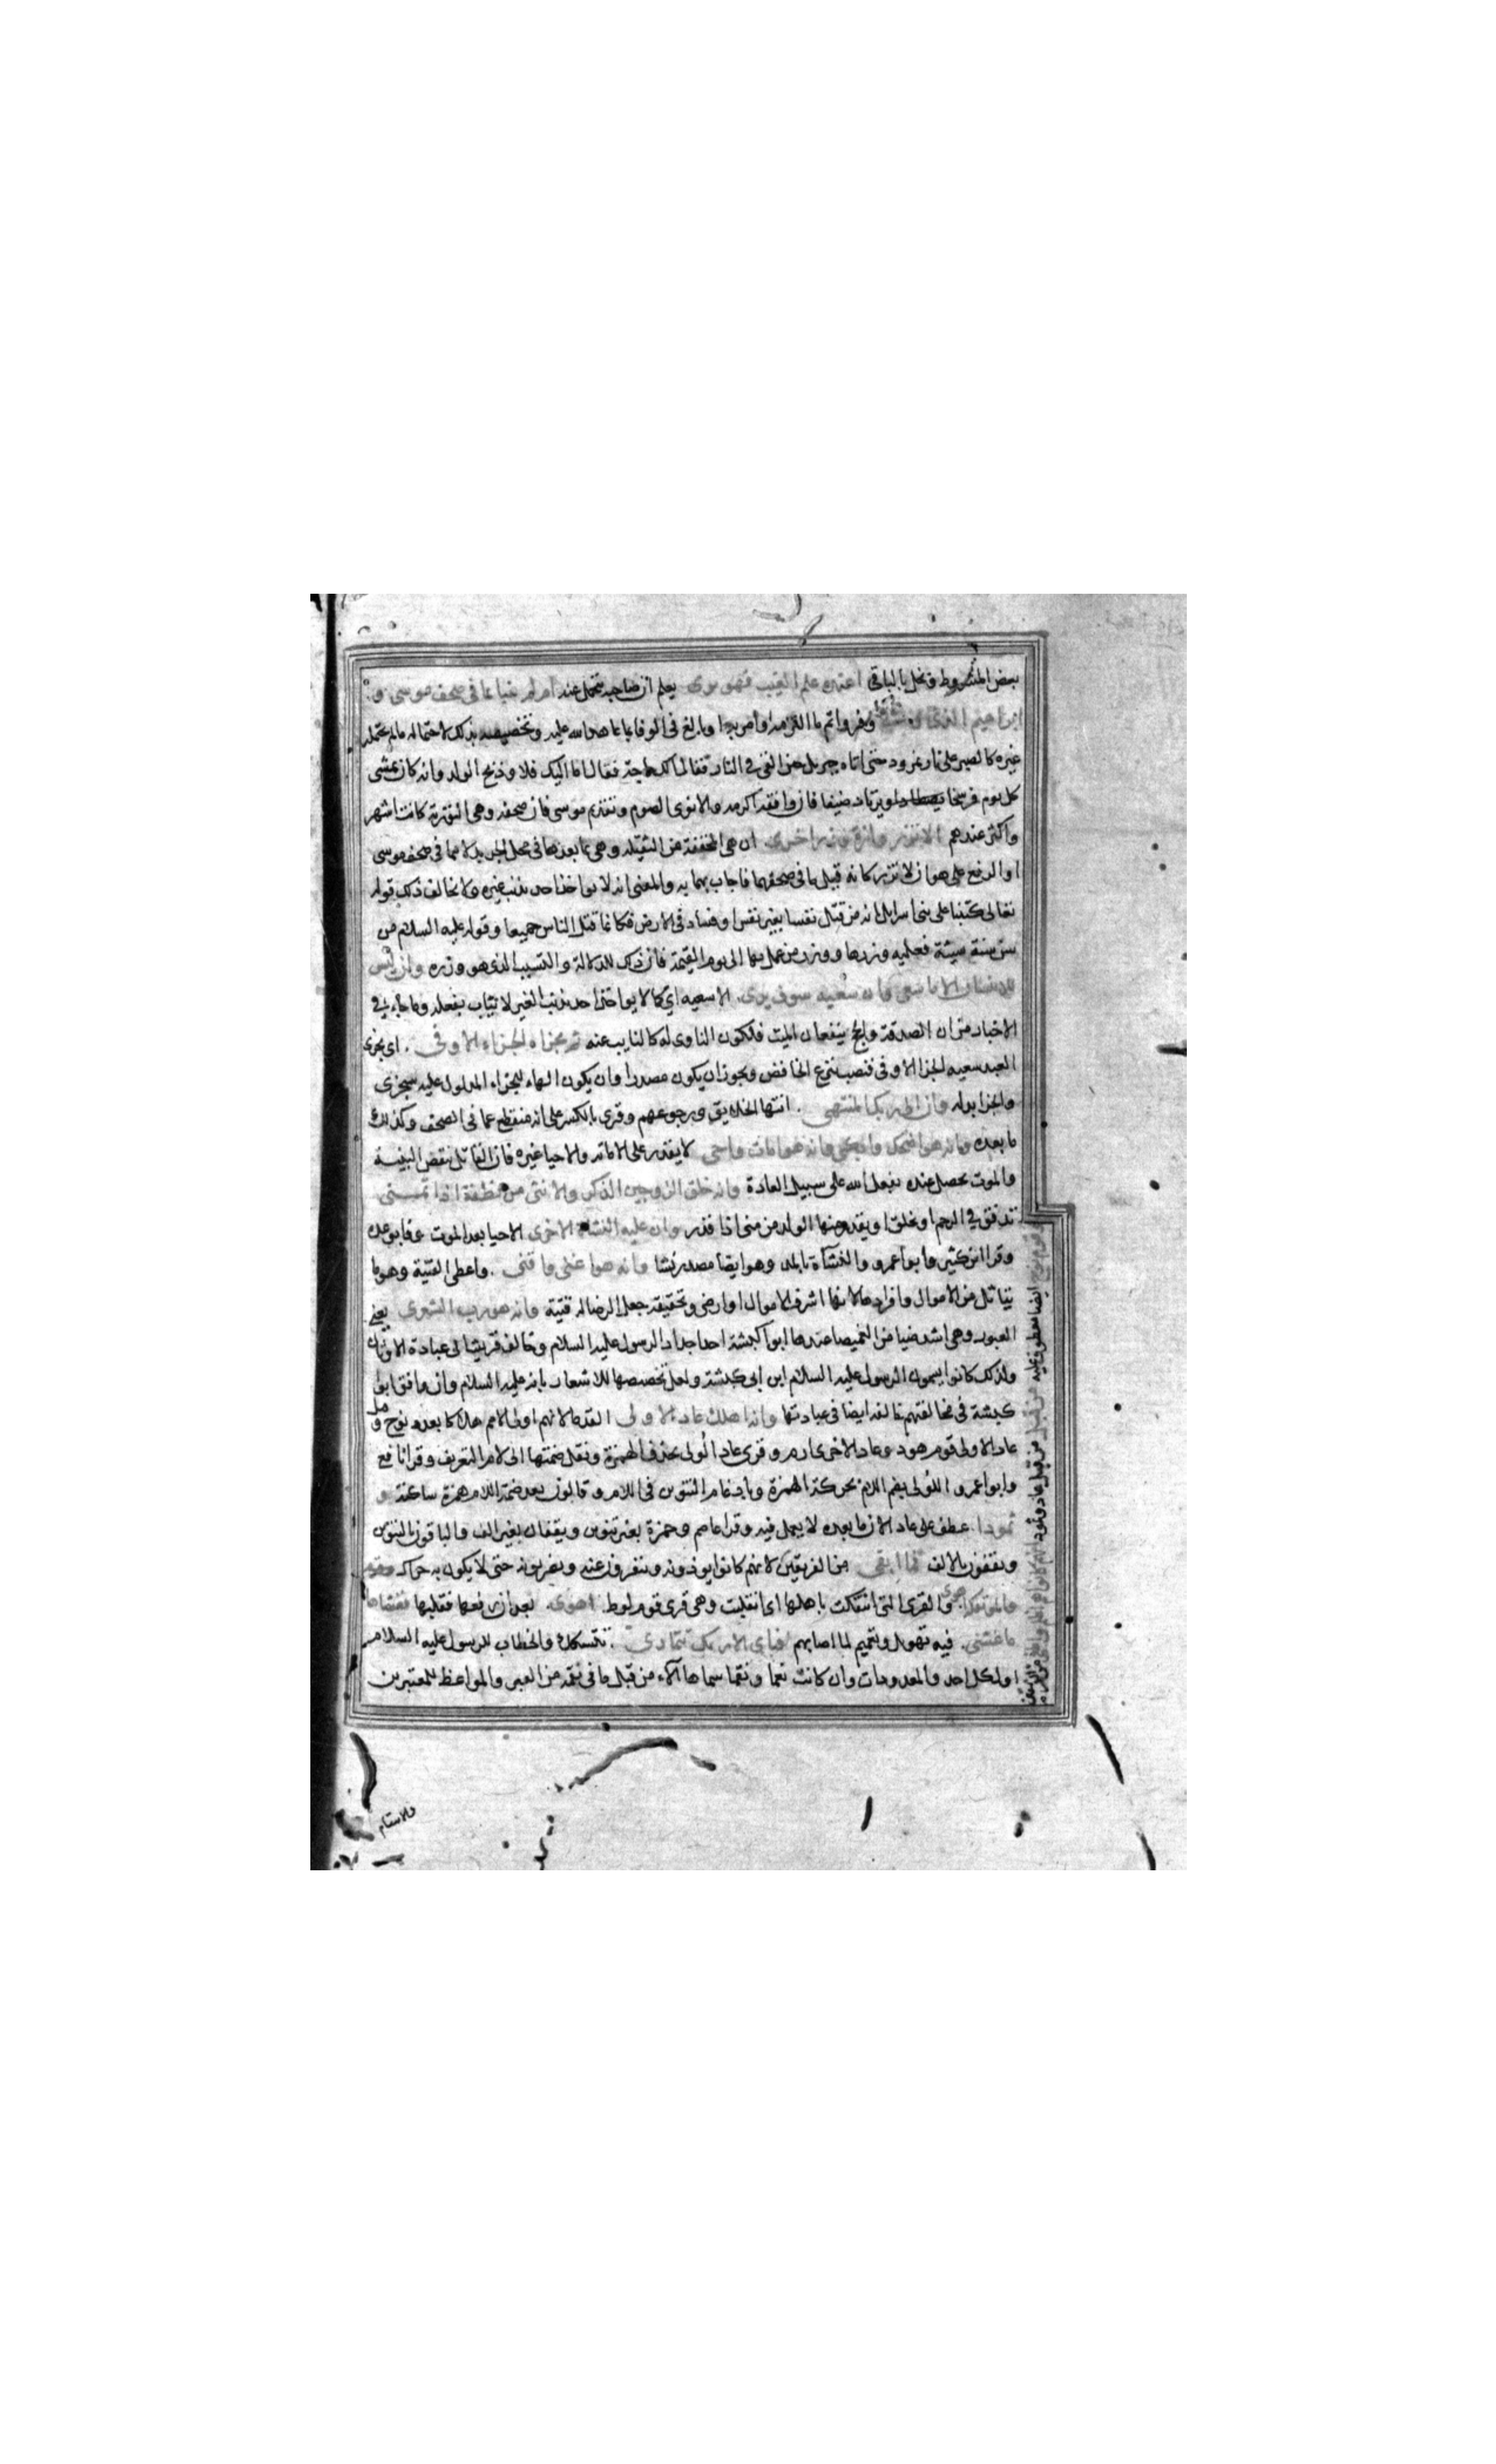 بعض المشروط وبخل بالباقي اعنده علم الغيب فهو يرى يعلم ان صاحبه يتحمل عنه ام لم ينبا بما في صحف موسى و
ابراهيم الذى وفى وفر واتم ما التزمه او امر به او بالغ فى الوفا بما عاهد الله عليه وتخصيصه بذلك لاحتماله ما لم يحتمله
غيره كالصبر على نار نمرود حتى اتاه جبريل حين القى في النار فقال الك حاجة فقال اما اليك فلا وذبح الولد وانه كان يمشى
كل يوم فرسخا يرتاد ضيفا فان وافقه اكرمه والا نوى الصوم وتقديم موسى فان صحفه وهى التورية كانت اشهر
واكثر عندهم الا تزر وازرة وزر اخرى ان هى المخففة من الثقيلة وهى بما بعدها فى محل الجر بدلا مما فى صحف موسى
او الرفع على هو ان لا تزر كانه قيل ما فى صحفهما فاجاب به والمعنى انه لا يواخذ احد بذنب غيره ولا يخالف ذلك قوله
تعالى كتبنا على بنى اسرايل انه من قتل نفسا بغير نفس او فساد فى الارض فكانما قتل الناس جميعا وقوله عليه السلام من
سن سنة سيئة فعليه وزرها ووزر من عمل بها الى يوم القيمة فان ذلك للدلالة والتسبب الذى هو وزره وان ليس
للانسان الا ما سعى وان سعيه سوف يرى الا سعيه اي كما لا يواخذ احد بذنب الغير لا يثاب بفعله وما جاء في
الاخبار من ان الصدقة والحج ينفعان الميت فلكون الناوى له كالنايب عنه ثم يجزاه الجزاء الاوفى اى يجزى
العبد سعيه الجزا الاوفى فنصب بنزع الخافض ويجوز ان يكون مصدرا وان يكون الهاء للجزاء المدلول عليه بيجزى
والجزا بدله وان الى ربك المنتهى انتها الخلايق ورجوعهم وقرى بالكسر على انه منقطع عما فى الصحف وكذلك
ما بعده وانه هو اضحك وابكى وانه هو امات واحى لا يقدر على الاماتة والاحيا غيره فان القاتل ينقض البنية
والموت يحصل عنده بفعل الله على سبيل العادة وانه خلق الزوجين الذكر والانثى من نطفة اذا تمنى
تدفق في الرحم او تخلق او يقدر منها الولد من منى اذا قدر وان عليه النشاة الاخرى الاحيا بعد الموت وفا بوعده
وقرا ابن كثير وابو عمرو والنشآة بالمد وهو ايضا مصدر نشا وانه هو اغنى واقنى واعطى القنية وهو ما
يتاثل من الاموال وافرادها لانها اشرف الاموال او ارضى وتحقيقه جعل الرضا له قنية وانه هو رب الشعرى يعني
العبور وهى اشد ضيا من الغميصا عبدها ابو كبشة احد اجداد الرسول عليه السلام وخالف قريشا فى عبادة الاوثان
ولذلك كانوا يسمون الرسول عليه السلام ابن ابى كبشة ولعل تخصيصها للاشعار بانه عليه السلام وان وافق ابو
كبشة فى مخالفتهم خالفه ايضا فى عبادتها وانه اهلك عاد الاولى القدما لانهم اولى الامم هلاكا بعد نوح وقيل
عاد الاولى قوم هود وعاد الاخرى ارم وقرى عاد الولى بحذف الهمزة ونقل ضمتها الى لام التعريف وقرا نافع
وابو عمرو اللولى بضم اللام بحركة الهمزة وبادغام التنوين فى اللام وقالون بعد ضمة اللام همزة ساكنة و
ثمودا عطف على عاد لان ما بعده لا يعمل فيه وقرا عاصم وحمزة بغير تنوين ويقفان بغير الف والباقون بالتنوين
ويقفون بالالف فما ابقى من الفريقين لانهم كانوا يوذونه وينفرون عنه ويضربونه حتى لا يكون به حراك
والموتفكة والقرى التى ائتفكت باهلها اى انقلبت وهى قرى قوم لوط اهوى بعد ان رفعها فقلبها فغشاها
ما غشى فيه تهويل وتعميم لما اصابهم فباى الاء ربك تتمارى تتشكك والخطاب للرسول عليه السلام
او لكل احد والمعدودات وان كانت نعما ونقما سماها آلاء من قبل ما فى نقمه من العبر والمواعظ للمعتبرين
وقوم نوح ايضا معطوف عليه من قبل من قبل عاد وثمود انهم كانوا هم اظلم واطغى
والانتقام